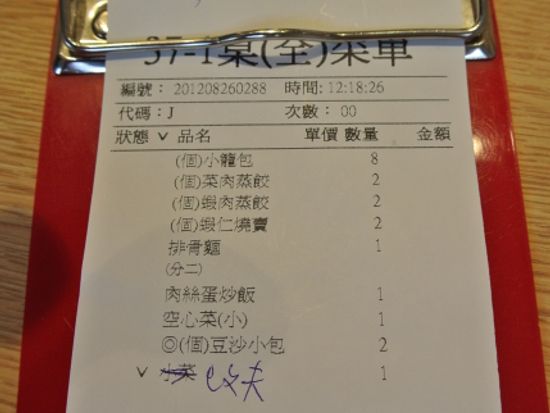 37-1桌(全)菜單
編號： 201208260288 時間: 12:18:26
代碼：J 次數： 00
狀態 ∨ 品名 單價 數量 金額
(個)小籠包 8
(個)菜肉蒸餃 2
(個)蝦肉蒸餃 2
(個)蝦仁燒賣 2
排骨麵 1
(分二)
肉絲蛋炒飯 1
空心菜(小) 1
◎(個)豆沙小包 2
∨ 小菜 1